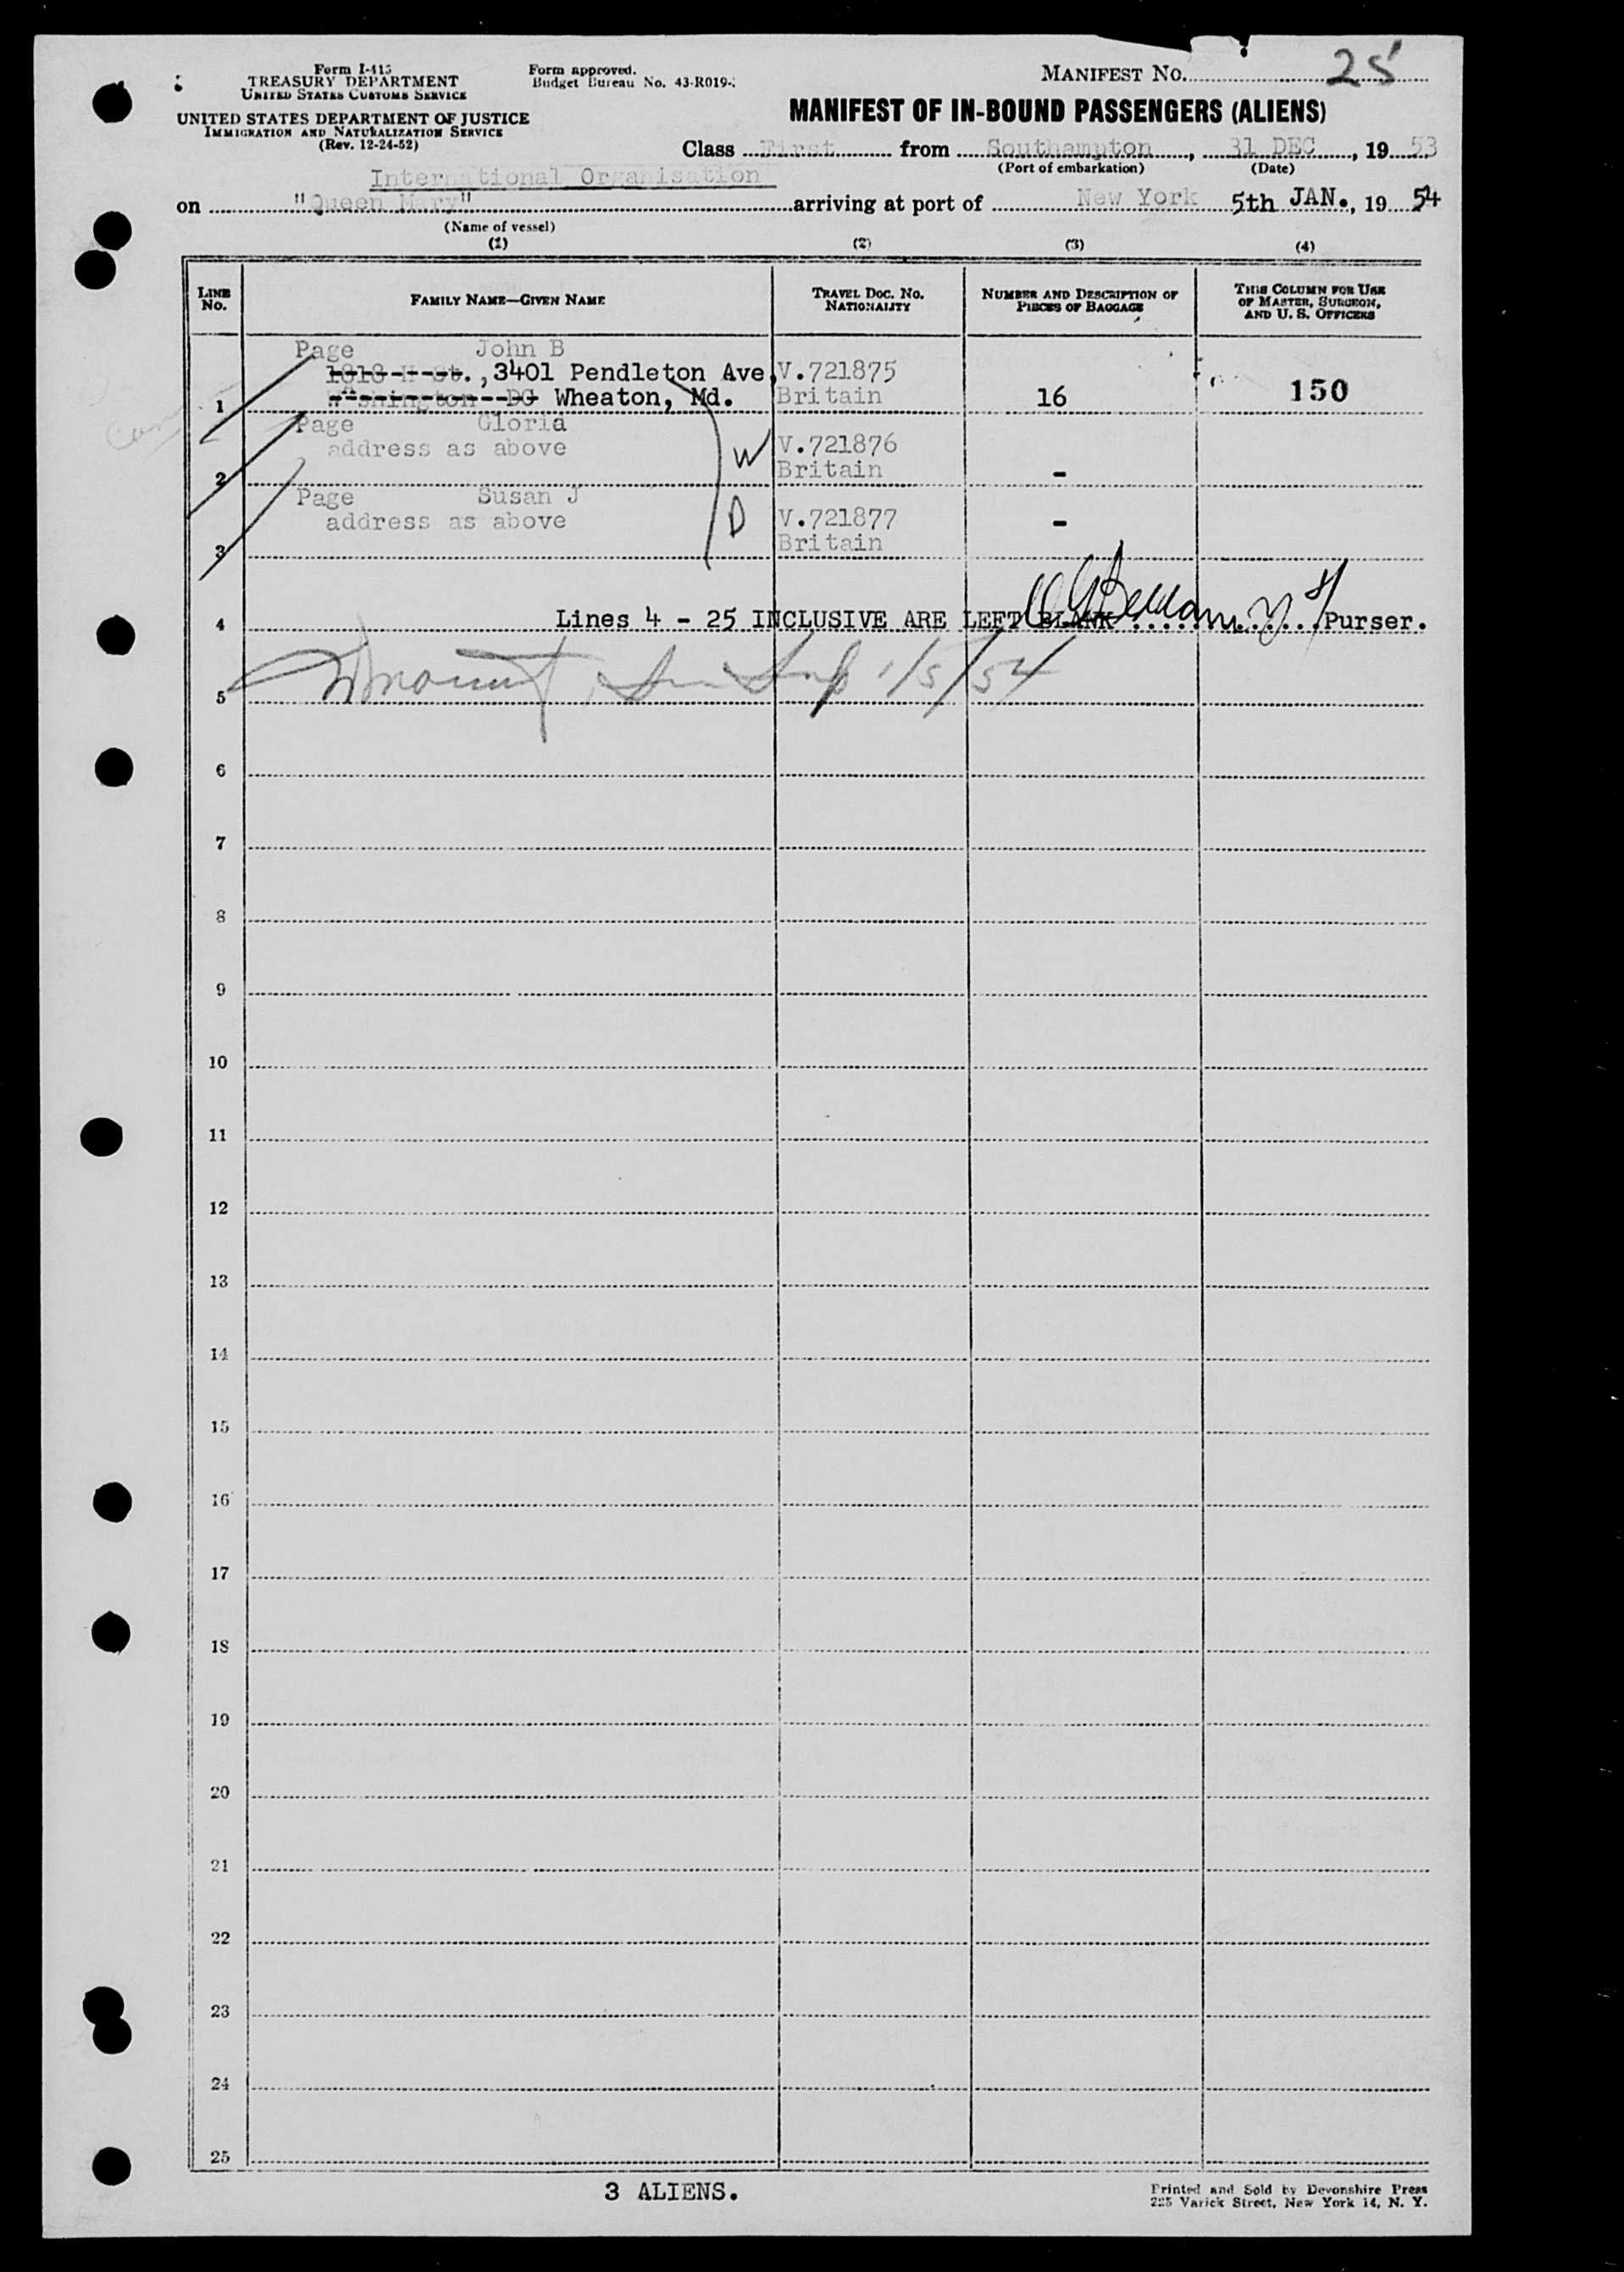 Form I-415
TREASURY DEPARTMENT
UNITED STATES CUSTOMS SERVICE
UNITED STATES DEPARTMENT OF JUSTICE
IMMIGRATION AND NATURALIZATION SERVICE
(Rev. 12-24-52)
Form approved.
Budget Bureau No. 43-R019-
MANIFEST NO. 25
MANIFEST OF IN-BOUND PASSENGERS (ALIENS)
Class First from Southampton, 31 DEC, 19 53
(Port of embarkation) (Date)
International Organisation
on "Queen Mary" arriving at port of New York 5th JAN., 19 54
(Name of vessel)
(1) (2) (3) (4)
LINE NO. FAMILY NAME—GIVEN NAME TRAVEL DOC. NO. NATIONALITY NUMBER AND DESCRIPTION OF PIECES OF BAGGAGE THIS COLUMN FOR USE OF MASTER, SURGEON, AND U. S. OFFICERS
Page John B
1818 H St., 3401 Pendleton Ave V.721875
1 Washington DC Wheaton, Md. Britain 16 150
Page Gloria
address as above W V.721876
2 Britain -
Page Susan J
address as above D V.721877 -
3 Britain
4 Lines 4 - 25 INCLUSIVE ARE LEFT BLANK Purser.
5 1/5/54
6
7
8
9
10
11
12
13
14
15
16
17
18
19
20
21
22
23
24
25
3 ALIENS.
Printed and Sold by Devonshire Press
225 Varick Street, New York 14, N. Y.